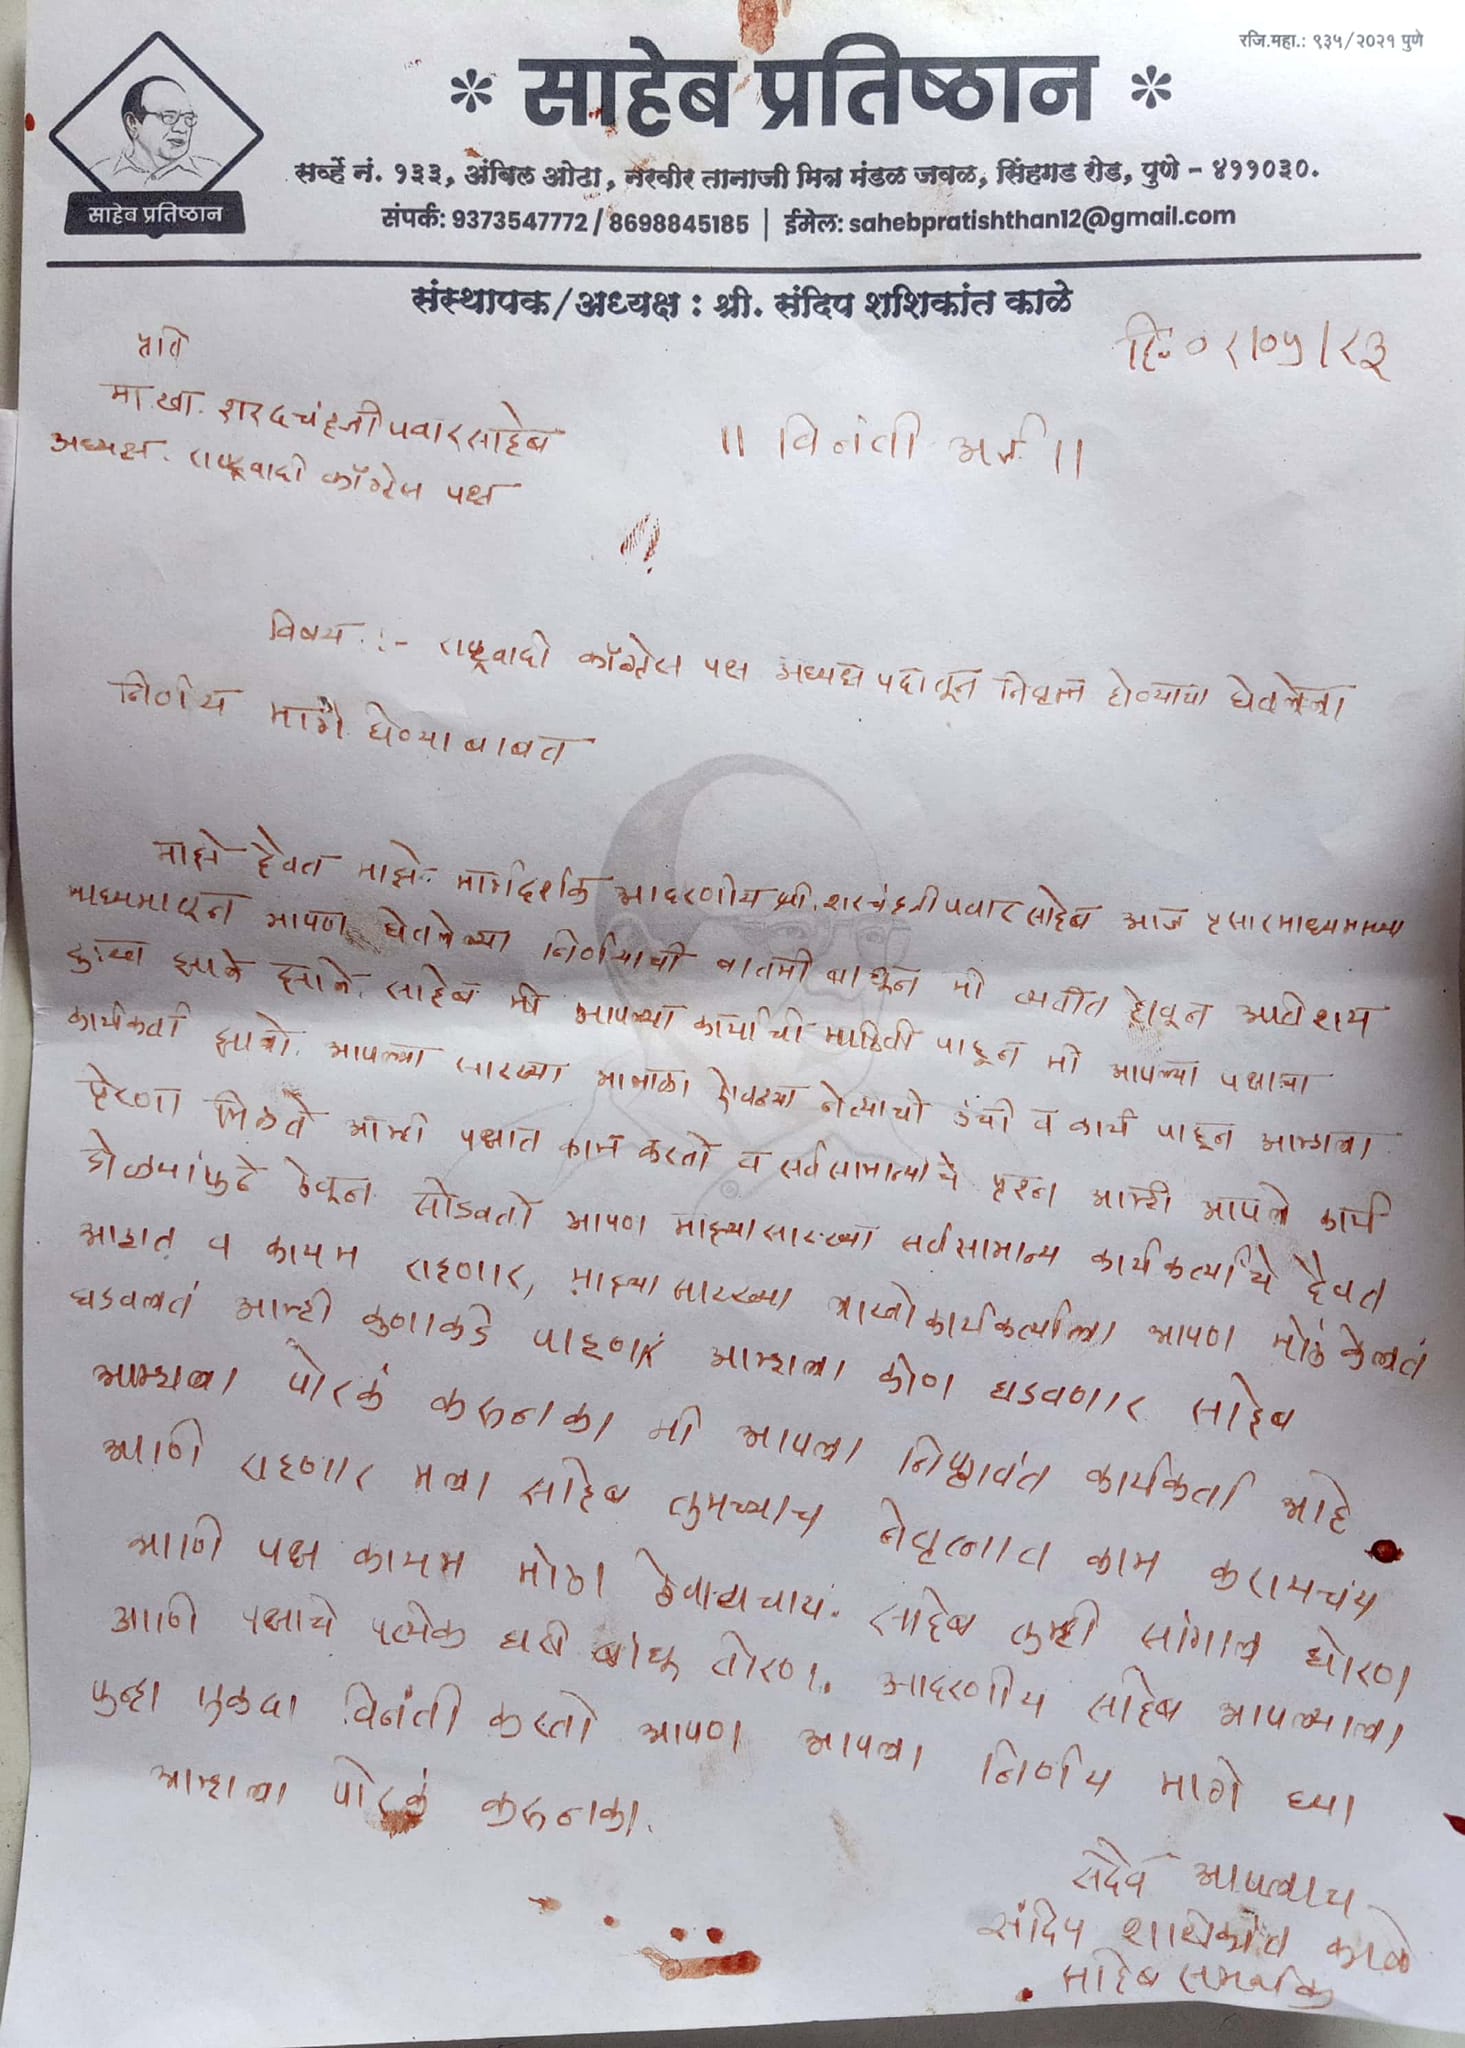 रजि.महा.: ९३५/२०२१ पुणे
साहेब प्रतिष्ठान
साहेब प्रतिष्ठान
सर्व्हे नं. १३३, अंबिल ओढा, नरवीर तानाजी मित्र मंडळ जवळ, सिंहगड रोड, पुणे - ४११०३०.
संपर्क: 9373547772 / 8698845185 | ईमेल: sahebpratishthan12@gmail.com
संस्थापक/अध्यक्ष : श्री. संदिप शशिकांत काळे
प्रति
मा.खा. शरदचंद्रजी पवार साहेब
अध्यक्ष. राष्ट्रवादी काँग्रेस पक्ष
॥ विनंती अर्ज ॥
विषय :- राष्ट्रवादी काँग्रेस पक्ष अध्यक्ष पदावून निवृत्त होण्याचा घेतलेला
निर्णय मागे घेण्याबाबत
माझे दैवत माझे मार्गदर्शक आदरणीय श्री. शरदचंद्रजी पवार साहेब आज प्रसारमाध्यमाच्या
माध्यमातून आपण घेतलेल्या निर्णयाची बातमी बघून मी व्यथीत होवून अतिशय
दुःख झाले. साहेब मी आपल्या कार्याची माहिती पाहून मी आपल्या पक्षाचा
कार्यकर्ता झालो. आपल्या सारख्या नेत्याची उंची व कार्य पाहून आम्हाला
प्रेरणा मिळते आम्ही पक्षात काम करतो व सर्वसामान्यांचे प्रश्न आम्ही आपले कार्य
डोळ्यांपुढे ठेवून सोडवतो आपण माझ्यासारख्या सर्वसामान्य कार्यकर्त्यांचे दैवत
आहात व कायम राहणार, माझ्या सारख्या लाखो कार्यकर्त्याला आपण मोठं केलतं
घडवलतं आम्ही कुणाकडे पाहणार आम्हाला कोण घडवणार साहेब
आम्हाला पोरकं करू नका मी आपला निष्ठावंत कार्यकर्ता आहे
आणि राहणार मला साहेब तुमच्याच नेतृत्वात काम करायचंय
आणि पक्ष कायम मोठा ठेवायचाय. साहेब तुम्ही सांगाल धोरण
आणि पक्षाचे प्रत्येक घरी बांधू तोरण. आदरणीय साहेब आपल्याला
पुन्हा एकदा विनंती करतो आपण आपला निर्णय मागे घ्या
आम्हाला पोरकं करू नका.
सदैव आपलाच
संदिप शशिकांत काळे
साहेब समर्थक